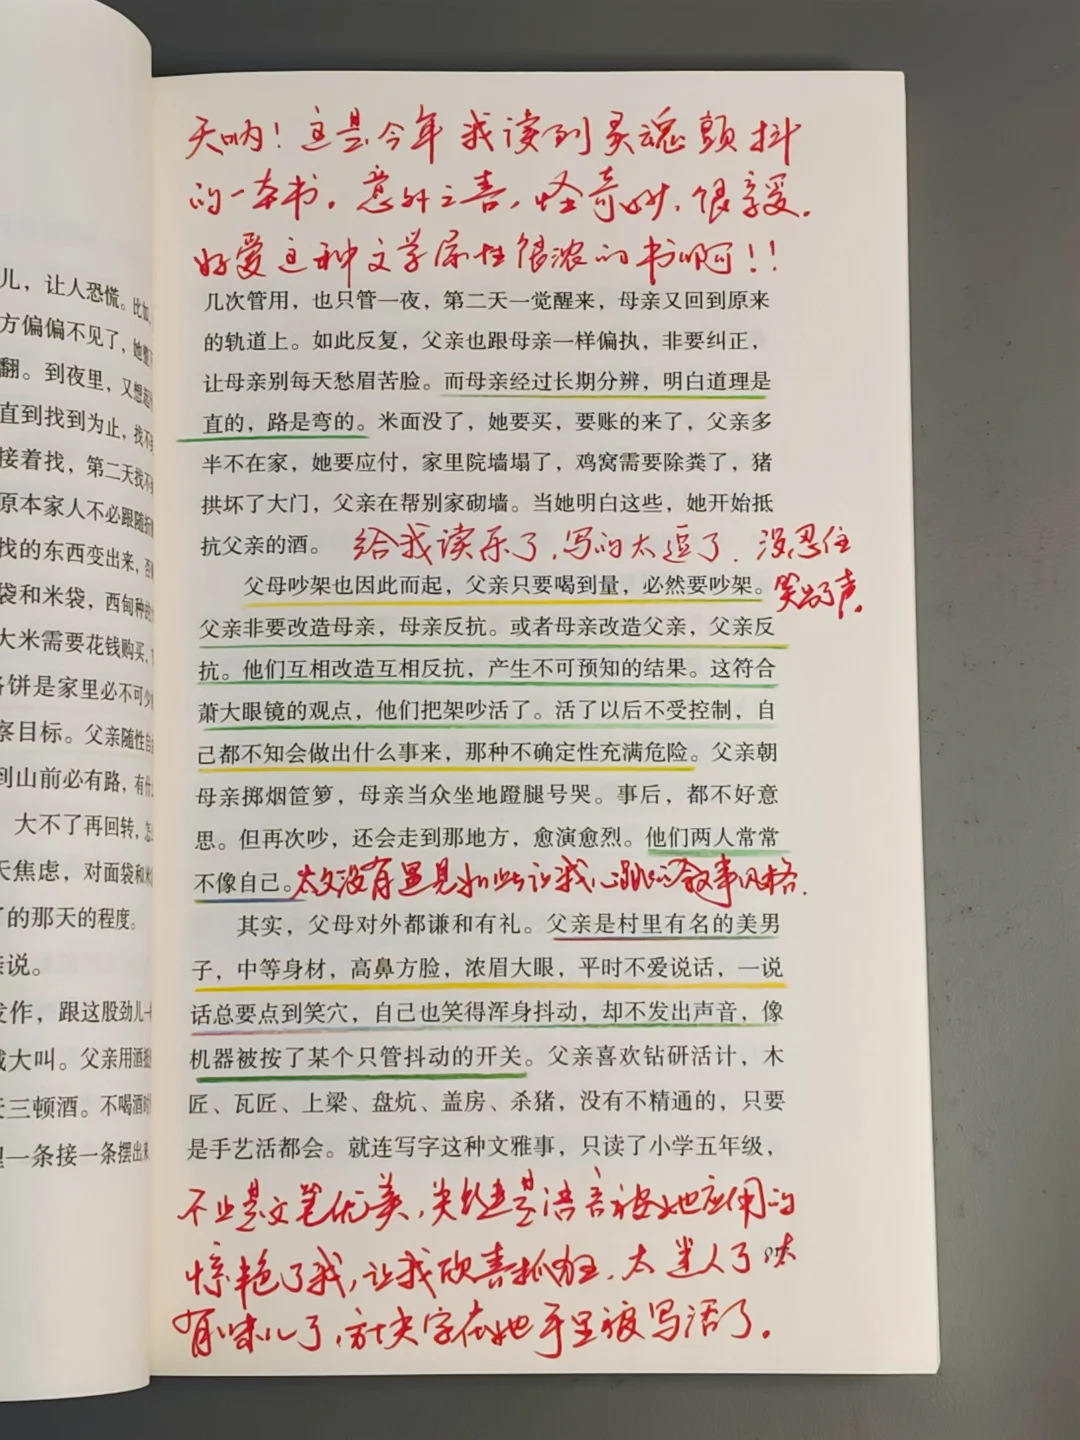 儿，让人恐慌。比如，
方偏偏不见了，她整
翻。到夜里，又想起
直到找到为止，找不
接着找，第二天找不
原本家人不必跟随
找的东西变出来，否
袋和米袋，西甸种的
大米需要花钱购买，
饼是家里必不可少
察目标。父亲随性自
到山前必有路，有什
大不了再回转，怎
天焦虑，对面袋和米
了的那天的程度。
亲说。
发作，跟这股劲儿
大叫。父亲用酒
天三顿酒。不喝酒时
一条接一条摆出来
天呐！这是今年我读到灵魂颤抖
的一本书。意外之喜，怪奇妙，很享受。
好爱这种文学属性很浓的书啊！！
几次管用，也只管一夜，第二天一觉醒来，母亲又回到原来
的轨道上。如此反复，父亲也跟母亲一样偏执，非要纠正，
让母亲别每天愁眉苦脸。而母亲经过长期分辨，明白道理是
直的，路是弯的。米面没了，她要买，要账的来了，父亲多
半不在家，她要应付，家里院墙塌了，鸡窝需要除粪了，猪
拱坏了大门，父亲在帮别家砌墙。当她明白这些，她开始抵
抗父亲的酒。 给我读乐了，写的太逗了，没忍住
笑出了声。
父母吵架也因此而起，父亲只要喝到量，必然要吵架。
父亲非要改造母亲，母亲反抗。或者母亲改造父亲，父亲反
抗。他们互相改造互相反抗，产生不可预知的结果。这符合
萧大眼镜的观点，他们把架吵活了。活了以后不受控制，自
己都不知会做出什么事来，那种不确定性充满危险。父亲朝
母亲掷烟笸箩，母亲当众坐地蹬腿号哭。事后，都不好意
思。但再次吵，还会走到那地方，愈演愈烈。他们两人常常
不像自己。太久没有遇见如此让我心跳的叙事风格。
其实，父母对外都谦和有礼。父亲是村里有名的美男
子，中等身材，高鼻方脸，浓眉大眼，平时不爱说话，一说
话总要点到笑穴，自己也笑得浑身抖动，却不发出声音，像
机器被按了某个只管抖动的开关。父亲喜欢钻研活计，木
匠、瓦匠、上梁、盘炕、盖房、杀猪，没有不精通的，只要
是手艺活都会。就连写字这种文雅事，只读了小学五年级，
不止是文笔优美，关键是语言被她应用的
惊艳了我，让我欣喜抓狂，太迷人了 太
有味儿了，方块字在她手里被写活了。